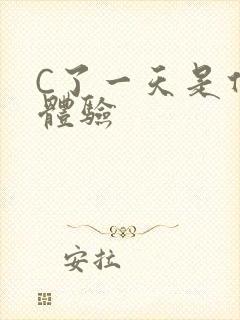 C了一天是
體驗
安拉